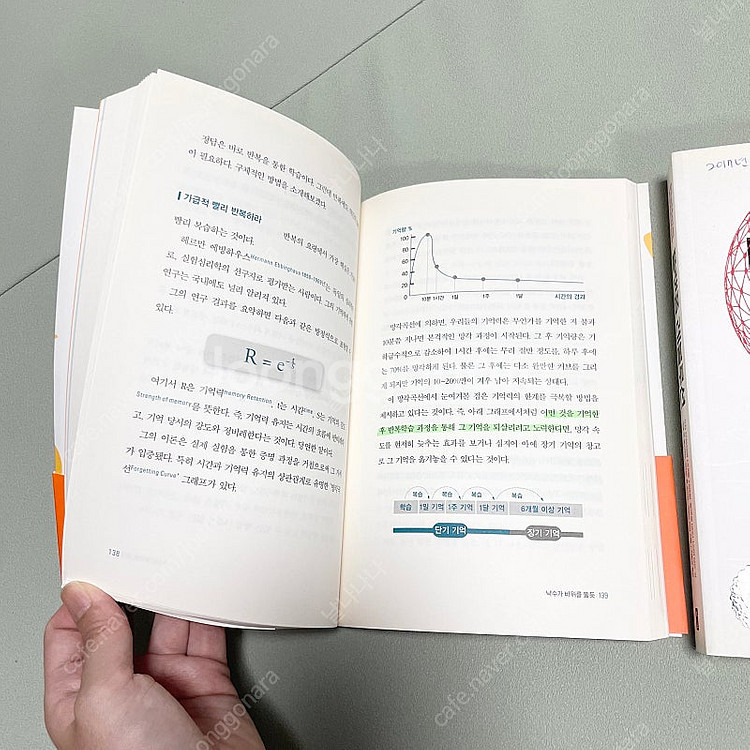 정답은 바로 반복을 통한 학습이다. 그런데 반복에도
이 필요하다. 구체적인 방법을 소개해보겠다.
가급적 빨리 반복하라
반복의 요령에서 가장
빨리 복습하는 것이다.
헤르만 에빙하우스Hermann Ebbinghaus 1850~1909는
로, 실험심리학의 선구자로 평가받는 사람이다. 그의 기억에
연구는 국내에도 널리 알려져 있다.
그의 연구 결과를 요약하면 다음과 같은 방정식으로 표현할
있다.
R = e
여기서 R은 기억력Memory Retention, t는 시간time, S는 기억의
Strength of memory를 뜻한다. 즉, 기억력 유지는 시간의 흐름에
고, 기억 당시의 강도와 정비례한다는 것이다. 당연한 말이다.
그의 이론은 실제 실험을 통한 증명 과정을 거침으로써 그
가 입증됐다. 특히 시간과 기억력 유지의 상관관계로 유명한 '망각
선Forgetting Curve' 그래프가 있다.
138
기억량 %
100
80
60
40
20
0
10분 1시간 1일 1주 1달 시간의 경과
망각곡선에 의하면, 우리들의 기억력은 무언가를 기억한 지 불과
10분쯤 지나면 본격적인 망각 과정이 시작된다. 그 후 기억량은 기
하급수적으로 감소하여 1시간 후에는 무려 절반 정도를, 하루 후에
는 70%를 망각하게 된다. 물론 그 후에는 다소 완만한 커브를 그리
게 되지만 기억의 10~20%만이 겨우 남아 지속되는 상태다.
이 망각곡선에서 눈여겨볼 점은 기억력의 한계를 극복할 방법을
제시하고 있다는 것이다. 즉, 아래 그래프에서처럼 어떤 것을 기억한
후 반복학습 과정을 통해 그 기억을 되살리려고 노력한다면, 망각 속
도를 현저히 늦추는 효과를 보거나 심지어 아예 장기 기억의 창고
로 그 기억을 옮겨놓을 수 있다는 것이다.
복습 복습 복습 복습
학습 1일 기억 1주 기억 1달 기억 6개월 이상 기억
단기 기억 장기 기억
낙수가 바위를 뚫듯 139
2017년